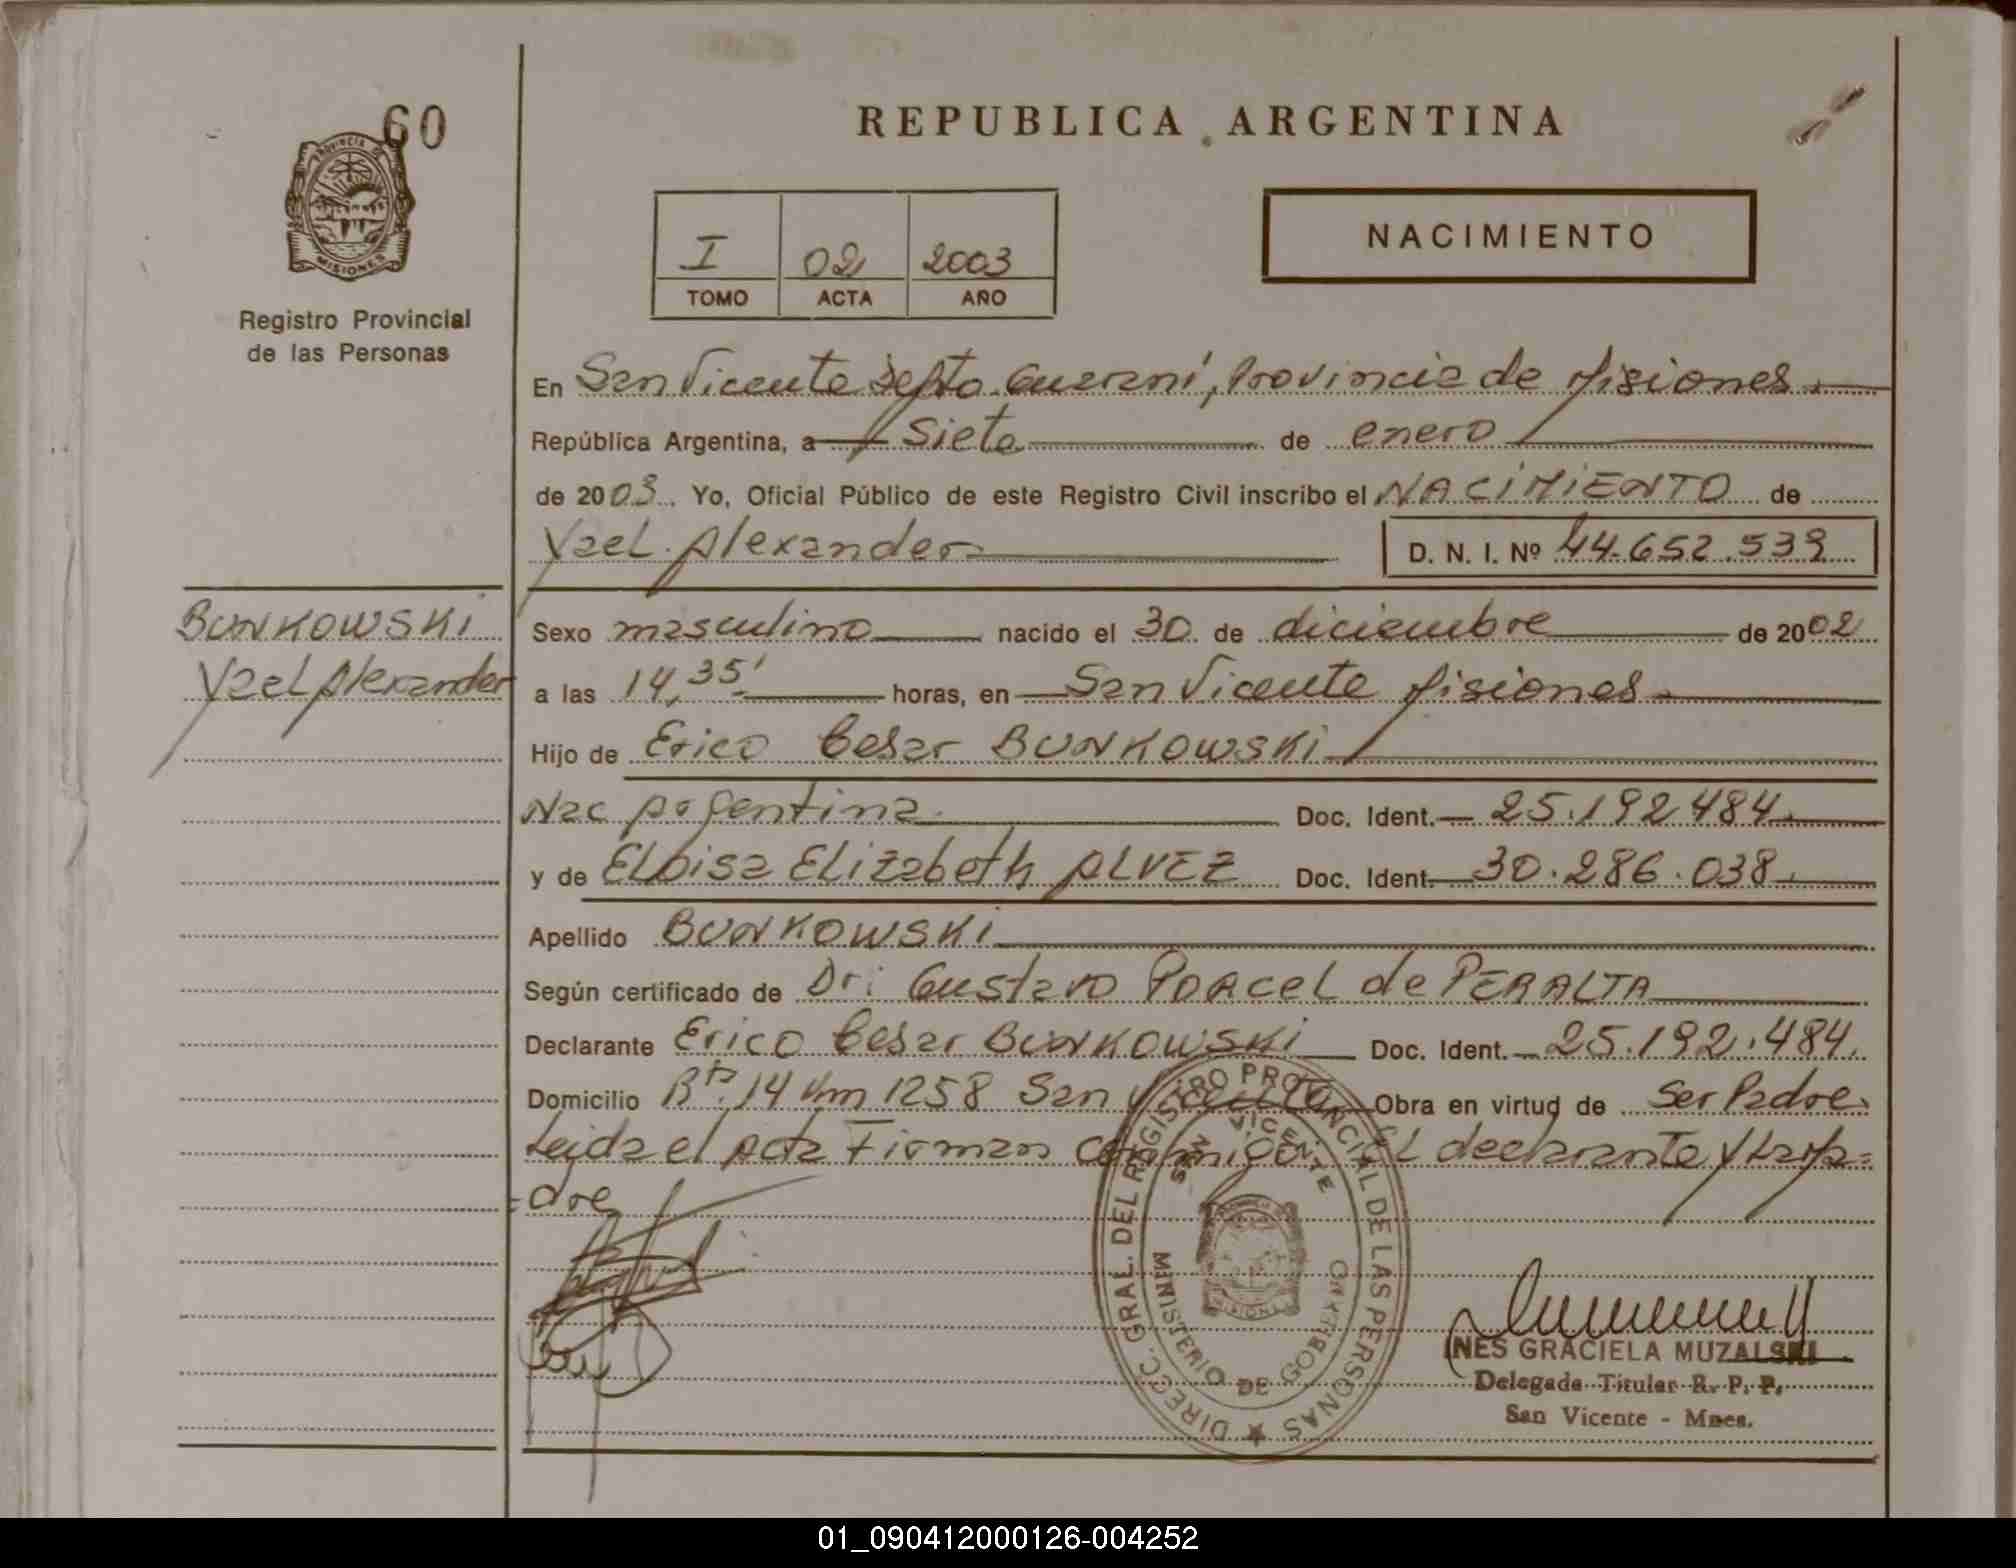 60
PROVINCIA DE
MISIONES
Registro Provincial
de las Personas
REPUBLICA ARGENTINA
I 02 2003
TOMO ACTA AÑO
NACIMIENTO
En San Vicente Depto. Guarani, Provincia de Misiones.
República Argentina, a Siete de enero
de 2003. Yo, Oficial Público de este Registro Civil inscribo el NACIMIENTO de
Yael Alexander D. N. I. Nº 44.652.539
BUNKOWSKI
Yael Alexander
Sexo masculino nacido el 30 de diciembre de 2002
a las 14,35' horas, en San Vicente Misiones
Hijo de Erico Cesar BUNKOWSKI
Nac Argentina Doc. Ident. 25.192.484
y de ELoisa ELizabeth ALVEZ Doc. Ident. 30.286.038
Apellido BUNKOWSKI
Según certificado de Dr: Gustavo PORCEL de PERALTA
Declarante Erico Cesar BUNKOWSKI Doc. Ident. 25.192.484
Domicilio Rta. 14 Km 1258 San Vicente Obra en virtud de Ser Padre.
Leida el Acta Firman conmigo EL declarante y La Ma=
=dre
DIRECC. GRAL. DEL REGISTRO PROVINCIAL DE LAS PERSONAS
SAN VICENTE
MINISTERIO DE GOBIERNO
MISIONES
INES GRACIELA MUZALSKI
Delegada Titular R. P. P.
San Vicente - Mnes.
01_090412000126-004252